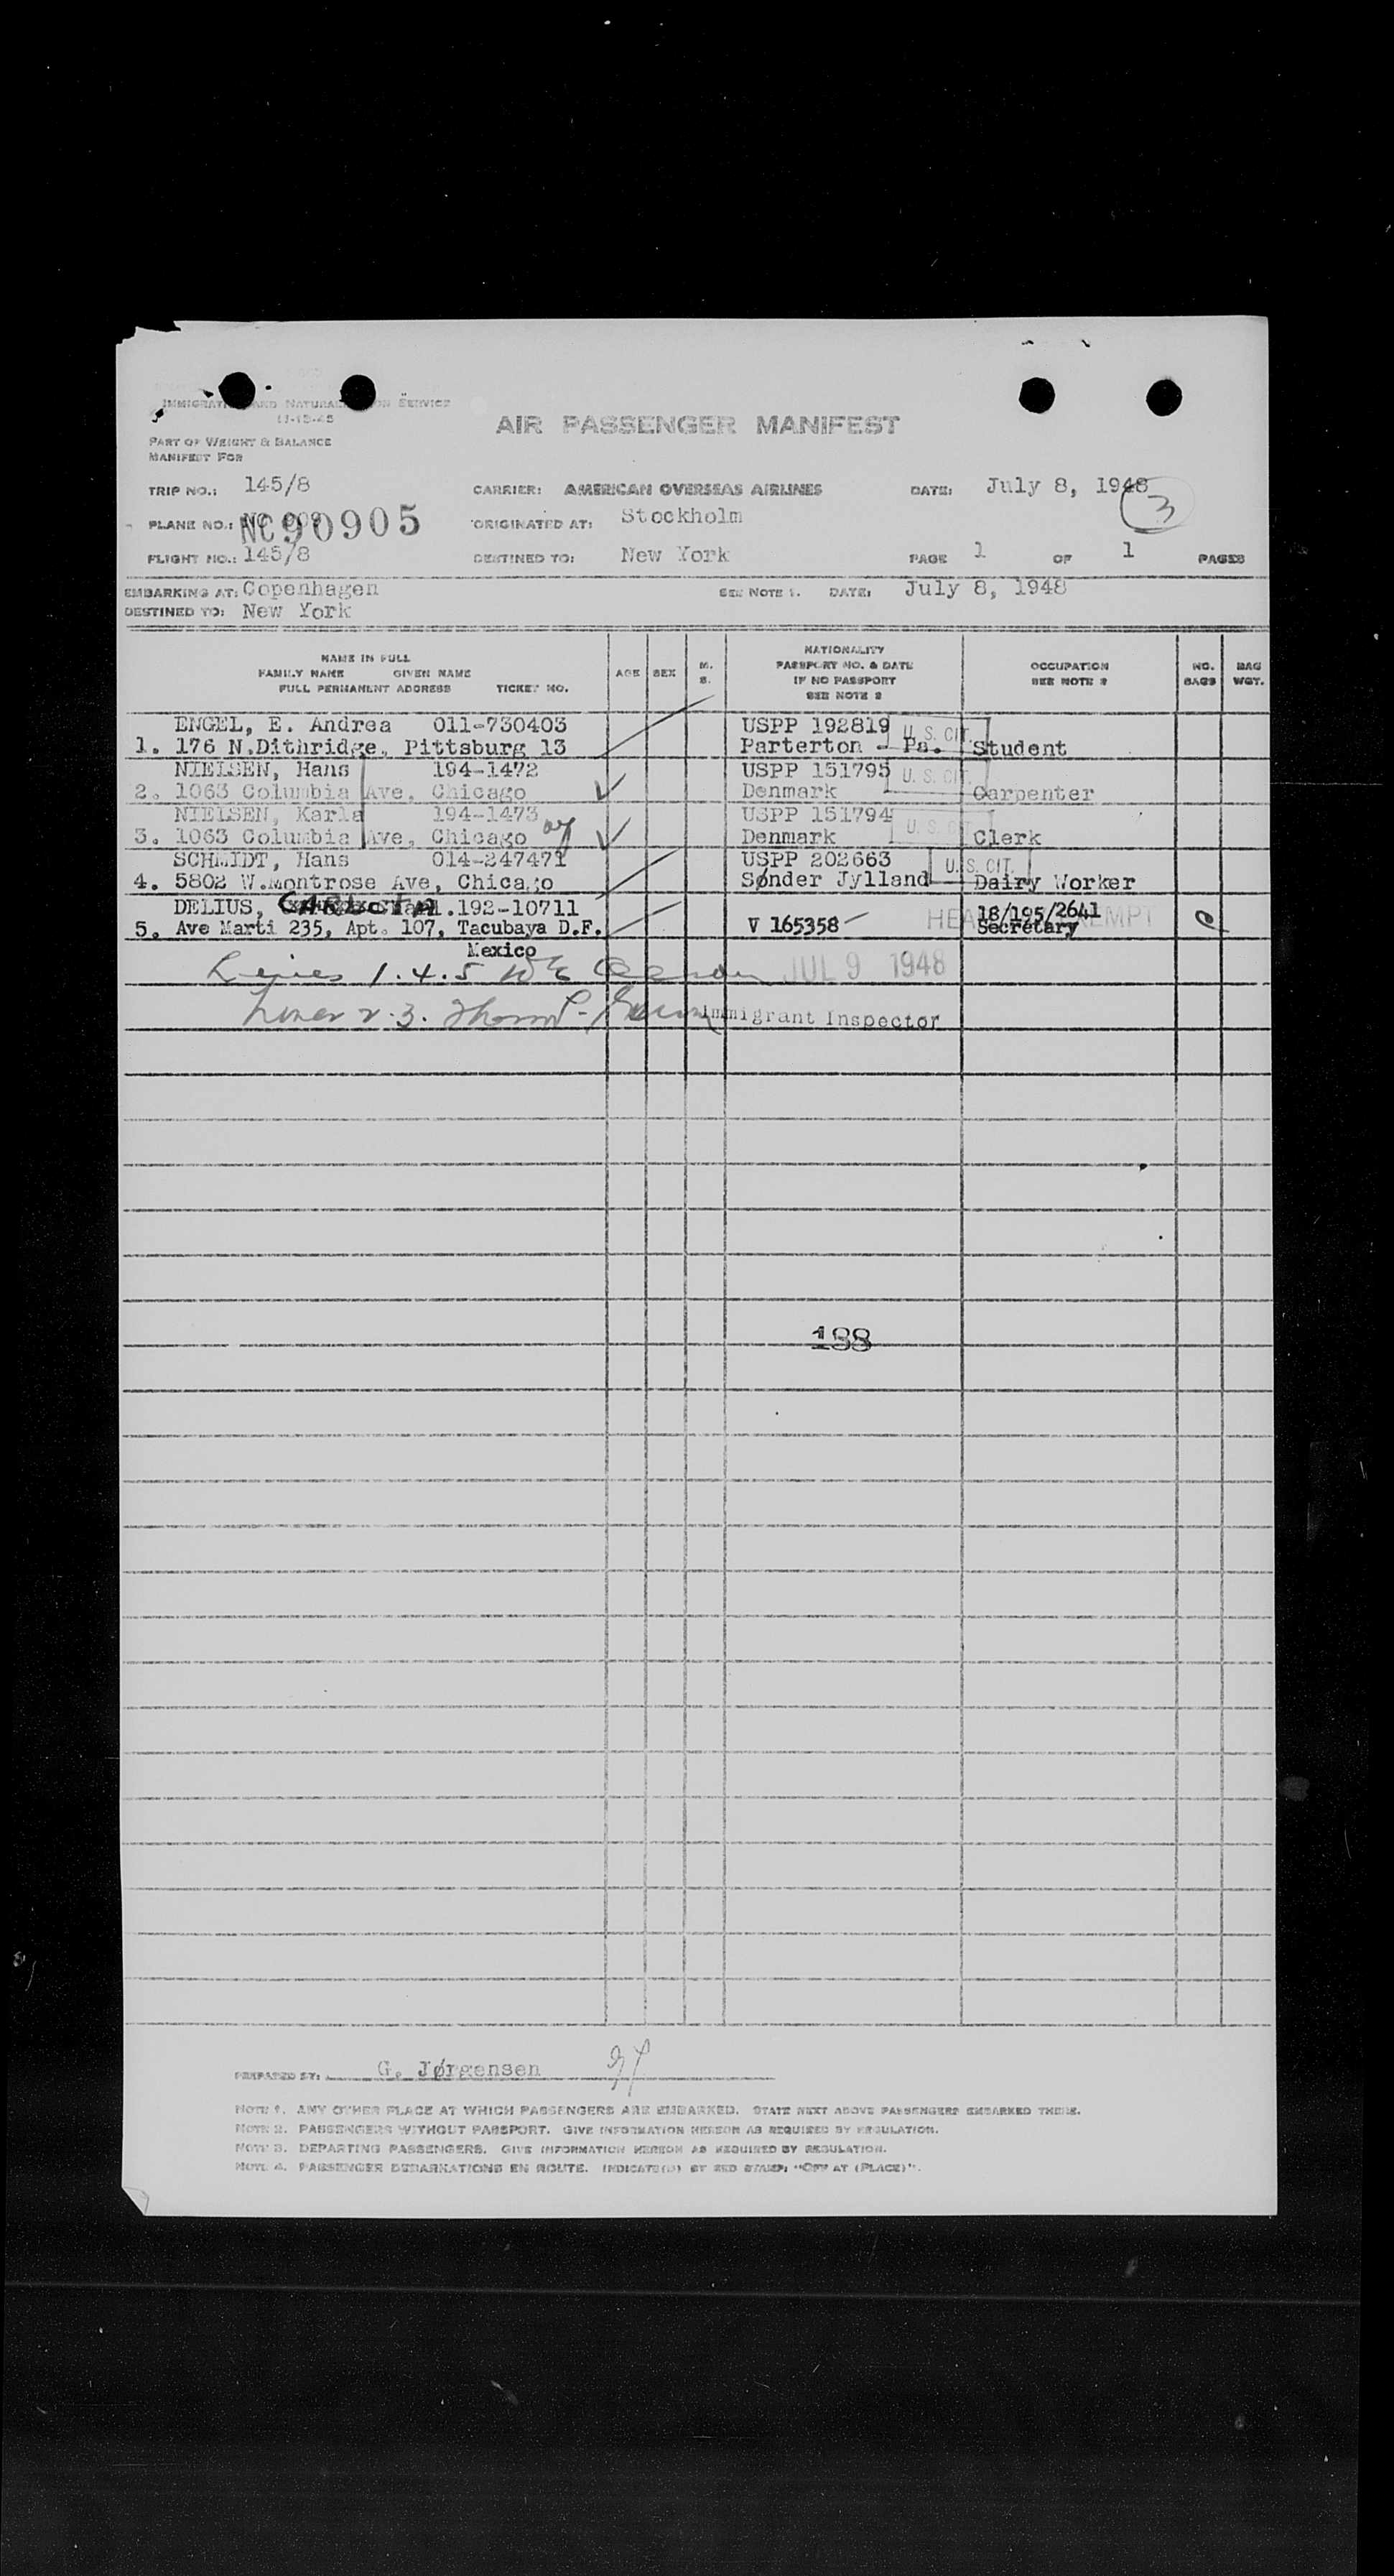 IMMIGRATION AND NATURALIZATION SERVICE
11-15-45
AIR PASSENGER MANIFEST
PART OF WEIGHT & BALANCE
MANIFEST FOR
TRIP NO.: 145/8 CARRIER: AMERICAN OVERSEAS AIRLINES DATE: July 8, 1948
3
PLANE NO.: NC90905 ORIGINATED AT: Stockholm
FLIGHT NO.: 145/8 DESTINED TO: New York PAGE 1 OF 1 PAGES
EMBARKING AT: Copenhagen SEE NOTE 1. DATE: July 8, 1948
DESTINED TO: New York
NAME IN FULL
FAMILY NAME GIVEN NAME
FULL PERMANENT ADDRESS TICKET NO.
AGE SEX M. S.
NATIONALITY
PASSPORT NO. & DATE
IF NO PASSPORT
SEE NOTE 2
OCCUPATION
SEE NOTE 2
NO. BAGS
BAG WGT.
ENGEL, E. Andrea 011-730403 USPP 192819 U. S. CIT.
1. 176 N.Dithridge, Pittsburg 13 Parterton - Pa. Student
NIELSEN, Hans 194-1472 USPP 151795 U. S. CIT.
2. 1063 Columbia Ave, Chicago Denmark Carpenter
NIELSEN, Karla 194-1473 USPP 151794 U. S. CIT.
3. 1063 Columbia Ave, Chicago Denmark Clerk
SCHMIDT, Hans 014-247471 USPP 202663 U. S. CIT.
4. 5802 W.Montrose Ave, Chicago Sønder Jylland Dairy Worker
DELIUS, CARLOTA M.192-10711 18/195/2641
5. Ave Marti 235, Apt. 107, Tacubaya D.F. V 165358 Secretary
Mexico
Lines 1.4.5 JUL 9 1948
Lines 2.3. Immigrant Inspector
188
PREPARED BY: G. Jørgensen
NOTE 1. ANY OTHER PLACE AT WHICH PASSENGERS ARE EMBARKED. STATE NEXT ABOVE PASSENGERS EMBARKED THERE.
NOTE 2. PASSENGERS WITHOUT PASSPORT. GIVE INFORMATION HEREON AS REQUIRED BY REGULATION.
NOTE 3. DEPARTING PASSENGERS. GIVE INFORMATION HEREON AS REQUIRED BY REGULATION.
NOTE 4. PASSENGER DEBARKATIONS EN ROUTE. INDICATE(D) BY RED STAMP: "OFF AT (PLACE)".